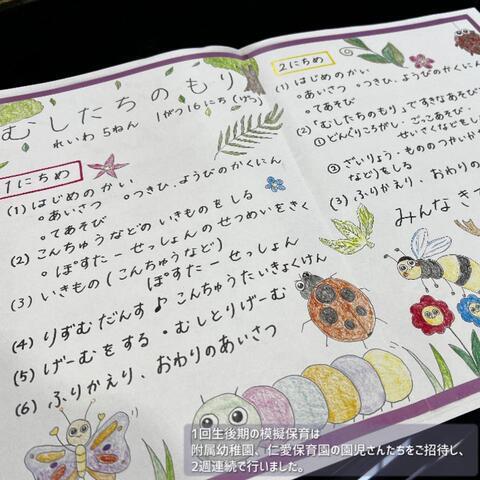 むしたちのもり
れいわ5ねん 1がつ16にち(げつ)
1にちめ
(1) はじめのかい
。あいさつ 。つきひ、ようびのかくにん
。てあそび
(2) こんちゅうなどの いきものを しる
。ぽすたーせっしょんの せつめいをきく
(3) いきもの(こんちゅうなど)
ぽすたー せっしょん
(4) りずむだんす♪ こんちゅうたいそうたいけん
(5) げーむをする ・むしとりげーむ
(6) ふりかえり、おわりのあいさつ
2にちめ
(1) はじめのかい
。あいさつ 。つきひ、ようびのかくにん
。てあそび
(2)「むしたちのもり」ですきなあそび
① どんぐりころがし・ごっこあそび・
せいさくなどをし
② ざいりょう・もののつかいかた
など)をしる
(3) ふりかえり、おわりの
みんな きて
1回生後期の模擬保育は
附属幼稚園、仁愛保育園の園児さんたちをご招待し、
2週連続で行いました。